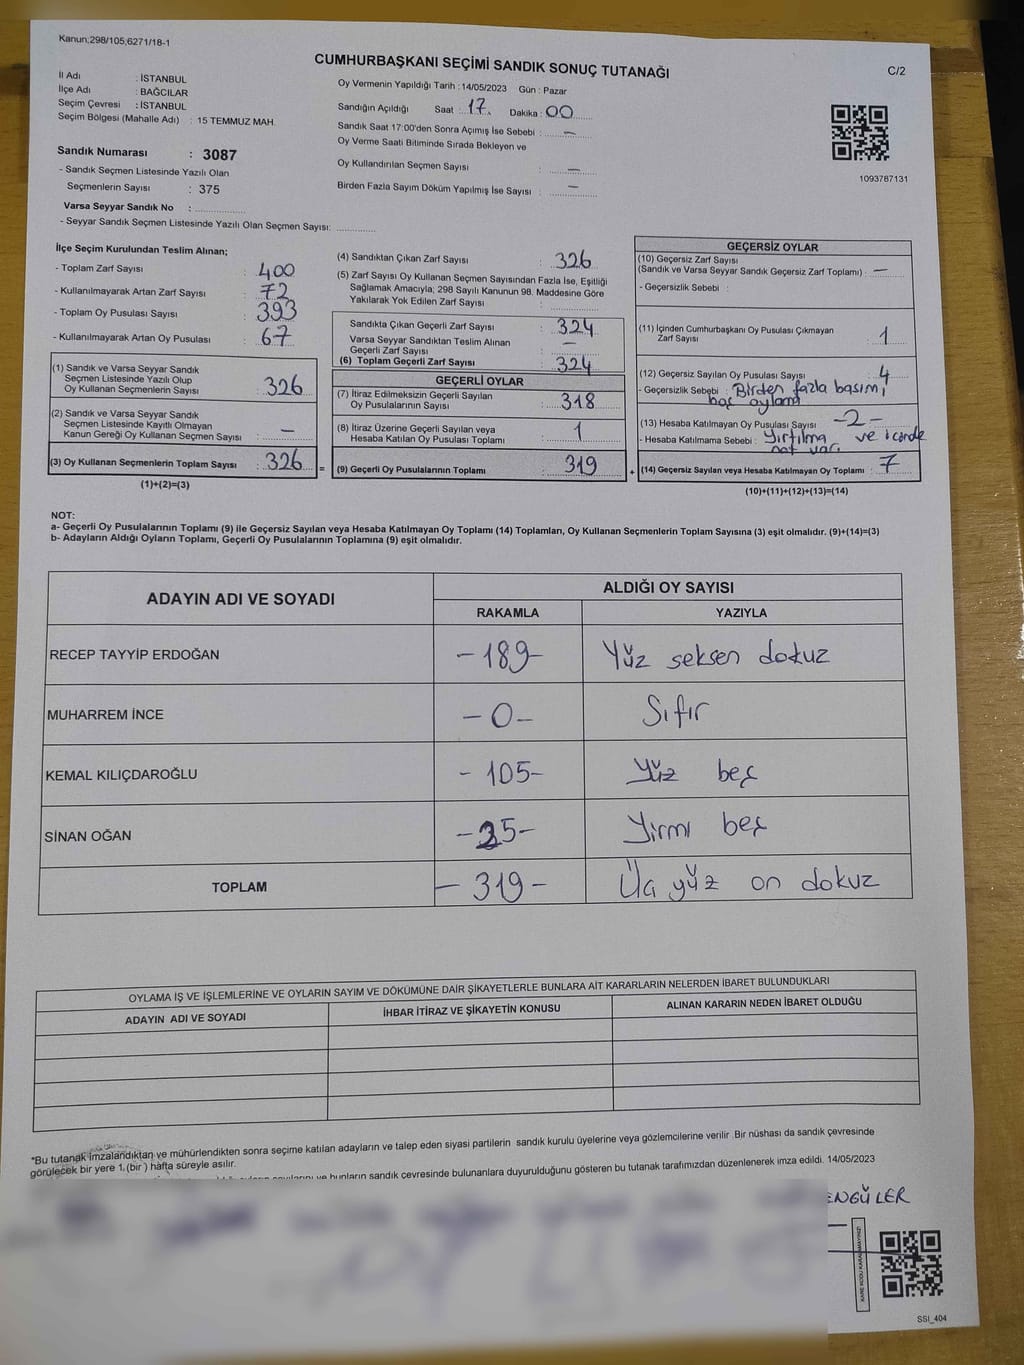 Kanun;298/105,6271/18-1
CUMHURBAŞKANI SEÇİMİ SANDIK SONUÇ TUTANAĞI
C/2
İl Adı : İSTANBUL
İlçe Adı : BAĞCILAR
Seçim Çevresi : İSTANBUL
Seçim Bölgesi (Mahalle Adı) : 15 TEMMUZ MAH.
Sandık Numarası : 3087
- Sandık Seçmen Listesinde Yazılı Olan
Seçmenlerin Sayısı : 375
Varsa Seyyar Sandık No : ..................
- Seyyar Sandık Seçmen Listesinde Yazılı Olan Seçmen Sayısı: ..............
Oy Vermenin Yapıldığı Tarih : 14/05/2023 Gün : Pazar
Sandığın Açıldığı Saat : 17. Dakika : 00
Sandık Saat 17:00'den Sonra Açımış İse Sebebi : —
Oy Verme Saati Bitiminde Sırada Bekleyen ve
Oy Kullandırılan Seçmen Sayısı : —
Birden Fazla Sayım Döküm Yapılmış İse Sayısı : —
1093787131
İlçe Seçim Kurulundan Teslim Alınan;
- Toplam Zarf Sayısı : 400
- Kullanılmayarak Artan Zarf Sayısı : 72
- Toplam Oy Pusulası Sayısı : 393
- Kullanılmayarak Artan Oy Pusulası : 67
(1) Sandık ve Varsa Seyyar Sandık
Seçmen Listesinde Yazılı Olup
Oy Kullanan Seçmenlerin Sayısı : 326
(2) Sandık ve Varsa Seyyar Sandık
Seçmen Listesinde Kayıtlı Olmayan
Kanun Gereği Oy Kullanan Seçmen Sayısı : —
(3) Oy Kullanan Seçmenlerin Toplam Sayısı : 326 =
(1)+(2)=(3)
(4) Sandıktan Çıkan Zarf Sayısı : 326
(5) Zarf Sayısı Oy Kullanan Seçmen Sayısından Fazla İse, Eşitliği
Sağlamak Amacıyla; 298 Sayılı Kanunun 98. Maddesine Göre
Yakılarak Yok Edilen Zarf Sayısı :
Sandıkta Çıkan Geçerli Zarf Sayısı : 324
Varsa Seyyar Sandıktan Teslim Alınan
Geçerli Zarf Sayısı : —
(6) Toplam Geçerli Zarf Sayısı : 324
GEÇERLİ OYLAR
(7) İtiraz Edilmeksizin Geçerli Sayılan
Oy Pusulasının Sayısı : 318
(8) İtiraz Üzerine Geçerli Sayılan veya
Hesaba Katılan Oy Pusulası Toplamı : 1
(9) Geçerli Oy Pusulalarının Toplamı : 319 +
GEÇERSİZ OYLAR
(10) Geçersiz Zarf Sayısı
(Sandık ve Varsa Seyyar Sandık Geçersiz Zarf Toplamı) : —
- Geçersizlik Sebebi :
(11) İçinden Cumhurbaşkanı Oy Pusulası Çıkmayan
Zarf Sayısı : 1
(12) Geçersiz Sayılan Oy Pusulası Sayısı : 4
- Geçersizlik Sebebi : Birden fazla basım,
boş oylama
(13) Hesaba Katılmayan Oy Pusulası Sayısı -2-
- Hesaba Katılmama Sebebi : Yırtılma ve içinde
not var.
(14) Geçersiz Sayılan veya Hesaba Katılmayan Oy Toplamı : 7
(10)+(11)+(12)+(13)=(14)
NOT:
a- Geçerli Oy Pusulalarının Toplamı (9) ile Geçersiz Sayılan veya Hesaba Katılmayan Oy Toplamı (14) Toplamları, Oy Kullanan Seçmenlerin Toplam Sayısına (3) eşit olmalıdır. (9)+(14)=(3)
b- Adayların Aldığı Oyların Toplamı, Geçerli Oy Pusulalarının Toplamına (9) eşit olmalıdır.
ADAYIN ADI VE SOYADI ALDIĞI OY SAYISI
RAKAMLA YAZIYLA
RECEP TAYYİP ERDOĞAN -189- Yüz seksen dokuz
MUHARREM İNCE -0- Sıfır
KEMAL KILIÇDAROĞLU -105- Yüz beş
SİNAN OĞAN -25- Yirmi beş
TOPLAM -319- Üç yüz on dokuz
OYLAMA İŞ VE İŞLEMLERİNE VE OYLARIN SAYIM VE DÖKÜMÜNE DAİR ŞİKAYETLERLE BUNLARA AİT KARARLARIN NELERDEN İBARET BULUNDUKLARI
ADAYIN ADI VE SOYADI İHBAR İTİRAZ VE ŞİKAYETİN KONUSU ALINAN KARARIN NEDEN İBARET OLDUĞU
*Bu tutanak imzalandıktan ve mühürlendikten sonra seçime katılan adayların ve talep eden siyasi partilerin sandık kurulu üyelerine veya gözlemcilerine verilir .Bir nüshası da sandık çevresinde
görülecek bir yere 1.(bir ) hafta süreyle asılır.
ve bunların sandık çevresinde bulunanlara duyurulduğunu gösteren bu tutanak tarafımızdan düzenlenerek imza edildi. 14/05/2023
ENGÜLER
KARE KODU KARALAMAYINIZ!
SSI_404